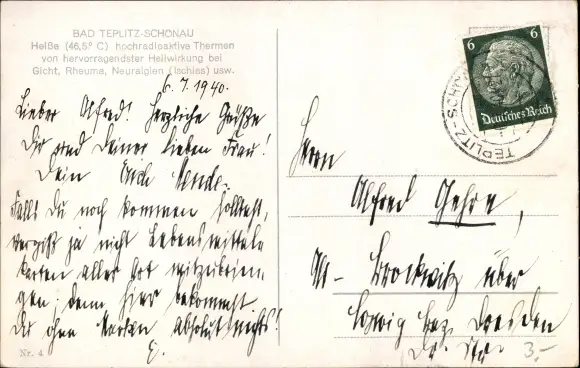 BAD TEPLITZ-SCHÖNAU
Heiße (46,5° C) hochradioaktive Thermen
von hervorragendster Heilwirkung bei
Gicht, Rheuma, Neuralgien (Ischias) usw.
6. 7. 1940.
Lieber Alfred! Herzliche Grüße
Dir und Deiner lieben Frau!
Dein Erich
Falls Du noch kommen solltest,
vergiß ja nicht Lebensmittel-
karten aller Art mitzubrin-
gen; denn hier bekommst
Du ohne Marken absolut nichts!
E.
Nr. 4
6
Deutsches Reich
TEPLITZ-SCHÖN
Herrn
Alfred Gehre,
Alt-Brockwitz über
Coswig Bez. Dresden
3,-